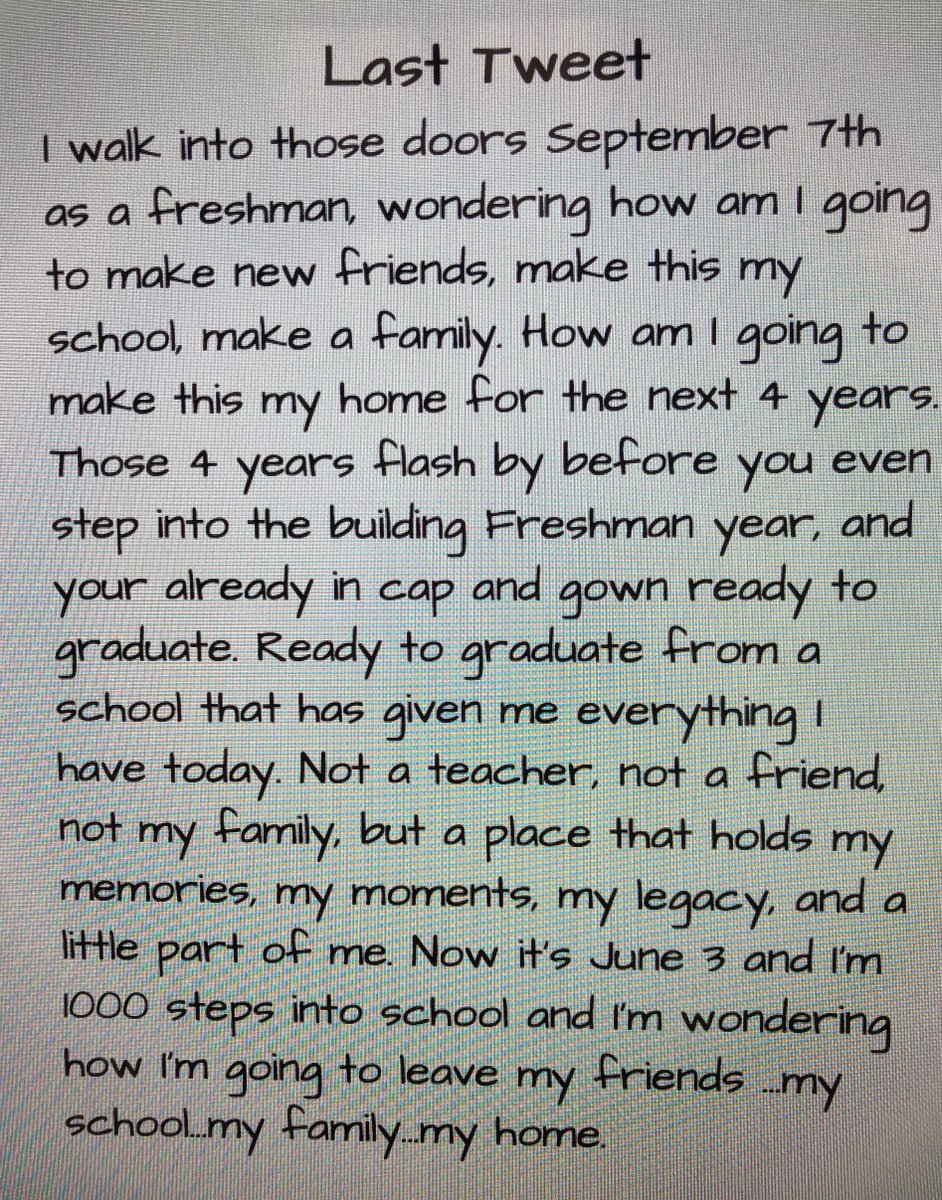 Last Tweet
I walk into those doors September 7th
as a freshman, wondering how am I going
to make new friends, make this my
school, make a family. How am I going to
make this my home for the next 4 years.
Those 4 years flash by before you even
step into the building Freshman year, and
your already in cap and gown ready to
graduate. Ready to graduate from a
school that has given me everything I
have today. Not a teacher, not a friend,
not my family, but a place that holds my
memories, my moments, my legacy, and a
little part of me. Now it's June 3 and I'm
1000 steps into school and I'm wondering
how I'm going to leave my friends ...my
school...my family...my home.